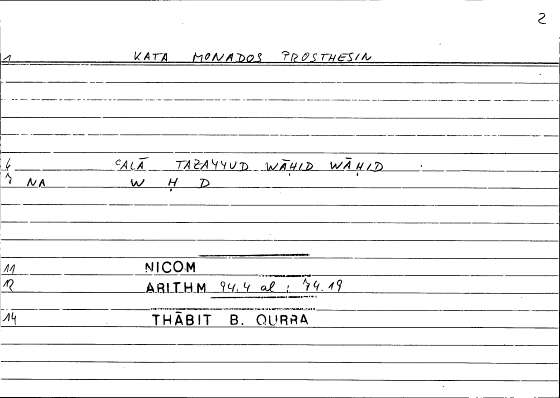 2
1 KATA MONADOS PROSTHESIN
4 ʿALĀ TAZAYYUD WĀḤID WĀḤID .
7 NA W Ḥ D
11 NICOM
12 ARITHM 94.4 al : 74.19
14 THĀBIT B. QURRA